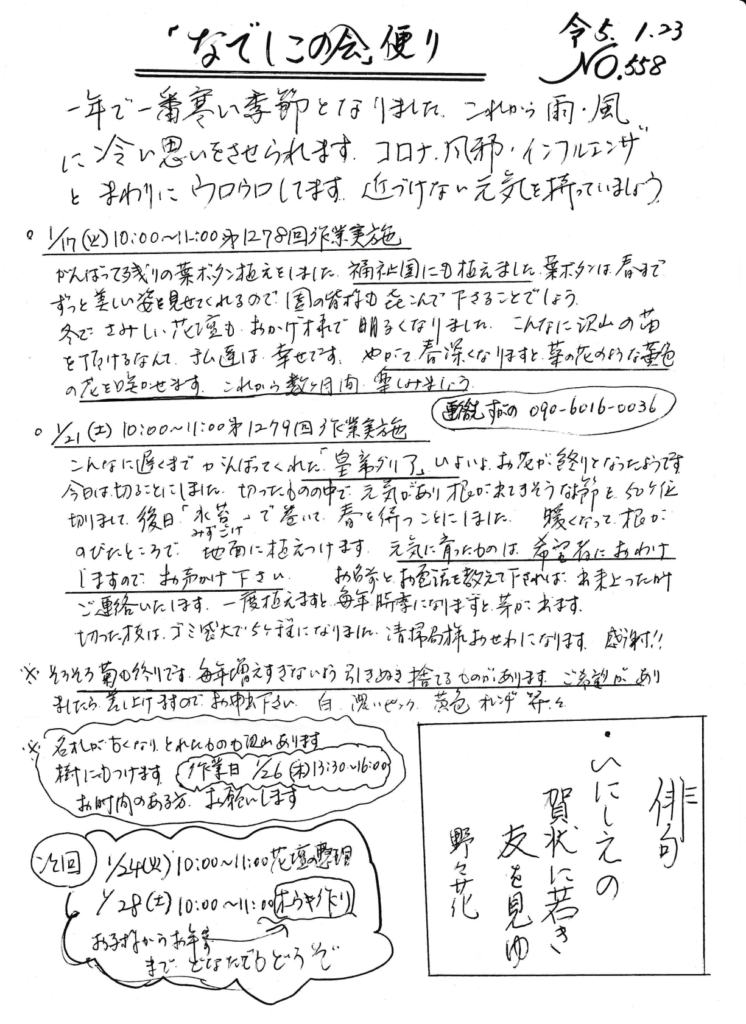 「なでしこの会」便り
令5.1.23
NO.558
一年で一番寒い季節となりました。これから雨・風
に冷い思いをさせられます。コロナ、風邪・インフルエンザ
と まわりに ウロウロしてます。近づけない元気を持っていましょう。
○ 1/17(火)10:00~11:00第1278回作業実施
がんばって残りの葉ボタン植えをしました。福祉園にも植えました。葉ボタンは、春まで
ずっと美しい姿を見せてくれるので園の皆様も喜こんで下さることでしょう。
冬で、さみしい花壇も、おかげ様で明るくなりました。こんなに沢山の苗
を頂けるなんて、私達は、幸せです。やがて、春深くなりますと、菜の花のような黄色
の花を咲かせます。これから数ヶ月間、楽しみましょう。
連絡先 すがの 090-6016-0036
○ 1/21(土)10:00~11:00第1279回作業実施
こんなに遅くまでがんばってくれた「皇帝ダリア」いよいよお花が終りとなったようです
今日は切ることにしました。切ったものの中で、元気があり根が出てきそうな節を、50ヶ位
切りまして、後日「水苔」で巻いて、春を待つことにしました。 暖くなって、根が
みずごけ
のびたところで、地面に植えつけます。元気に育ったものは、希望者におわけ
しますので、お声かけ下さい。 お名前とお電話を教えて下されば、出来上ったら
ご連絡いたします。一度植えますと、毎年時季になりますと芽が出ます。
切った枝は、ゴミ袋大で5ヶ程になりました。清掃局様おせわになります。感謝!!
※ そろそろ菊も終りです。毎年増えすぎないよう引きぬき捨てるものがあります。ご希望があり
ましたら、差し上げますので、お申出下さい。 白 濃いピンク 黄色 オレンヂ 等々
※ 名札が古くなり、とれたものも沢山あります
樹にもつけます 作業日 1/26(木)13:30~16:00
お時間のある方、お願いします
次回
1/24(火)10:00~11:00花壇の整理
1/28(土)10:00~11:00ホウキ作り
お子様からお年寄
まで どなたでもどうぞ
俳句
・いにしえの
賀状に若き
友を見ゆ
野々花